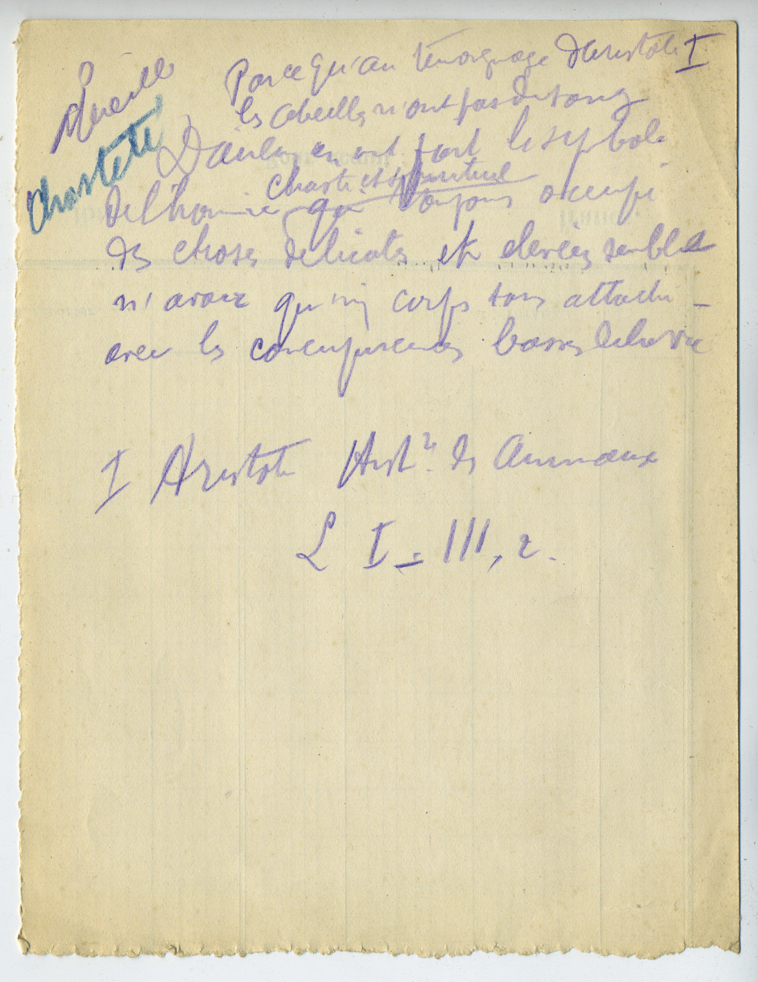 Abeille
Chasteté
Parce qu'au témoignage d'Aristote I
les abeilles n'ont pas de sang
en ont fait le symbole
chaste et spirituel
de l'homme qui toujours occupé
des choses délicates et élevées semble
n'avoir qu'un corps sans attache
avec les concupiscences basses de la vie
I Aristote Histre des Animaux
L I - III, 2.